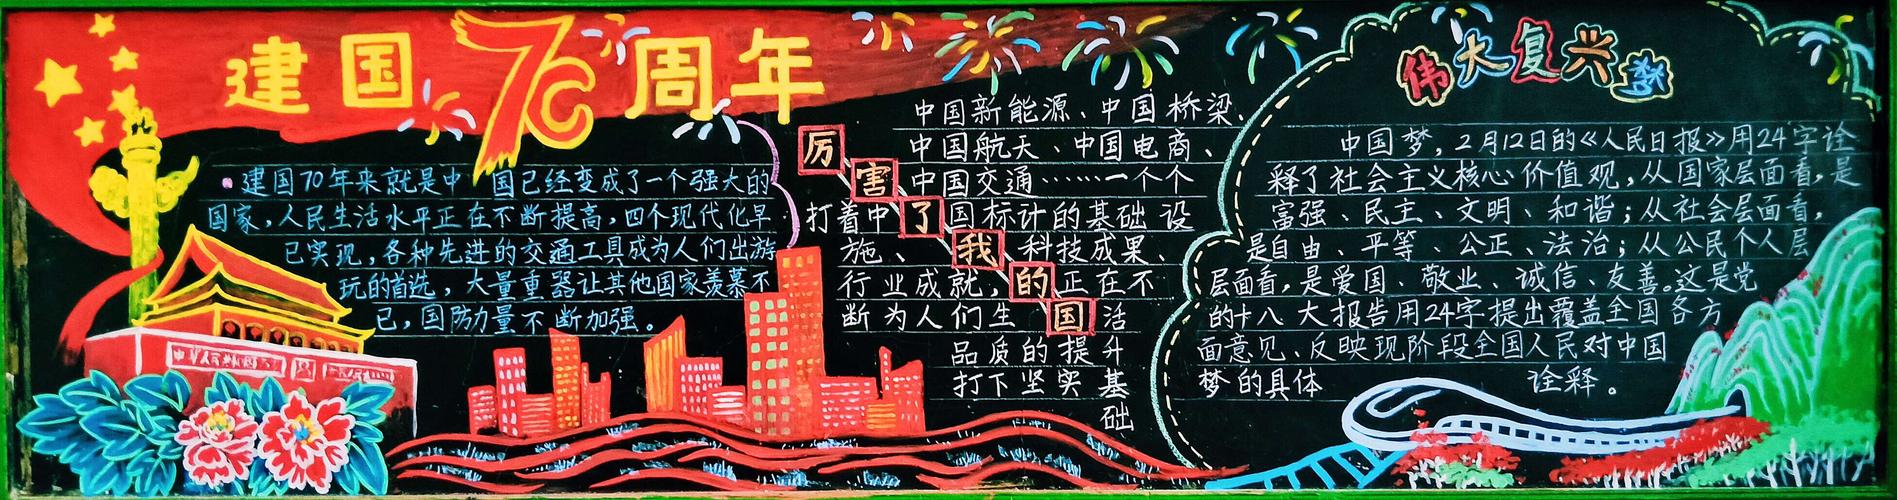 建国70周年
建国70年来就是中国已经变成了一个强大的
国家，人民生活水平正在不断提高，四个现代化早
已实现，各种先进的交通工具成为人们出游
玩的首选，大量重器让其他国家羡慕不
已，国防力量不断加强。
厉害了我的国
中国新能源、中国桥梁、
中国航天、中国电商、
中国交通……一个个
打着中国标计的基础设
施、科技成果、
行业成就，正在不
断为人们生活
品质的提升
打下坚实基
础
伟大复兴梦
中国梦，2月12日的《人民日报》用24字诠
释了社会主义核心价值观，从国家层面看，是
富强、民主、文明、和谐；从社会层面看，
是自由、平等、公正、法治；从公民个人层
层面看，是爱国、敬业、诚信、友善。这是党
的十八大报告用24字提出覆盖全国各方
面意见、反映现阶段全国人民对中国
梦的具体诠释。